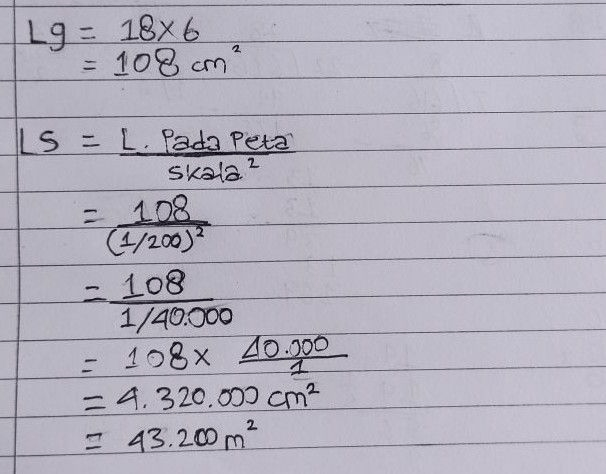 Lg = 18 × 6
= 108 cm²
LS = L. Pada Peta / Skala²
= 108 / (1/200)²
= 108 / 1/40.000
= 108 × 40.000 / 1
= 4.320.000 cm²
= 43.200 m²